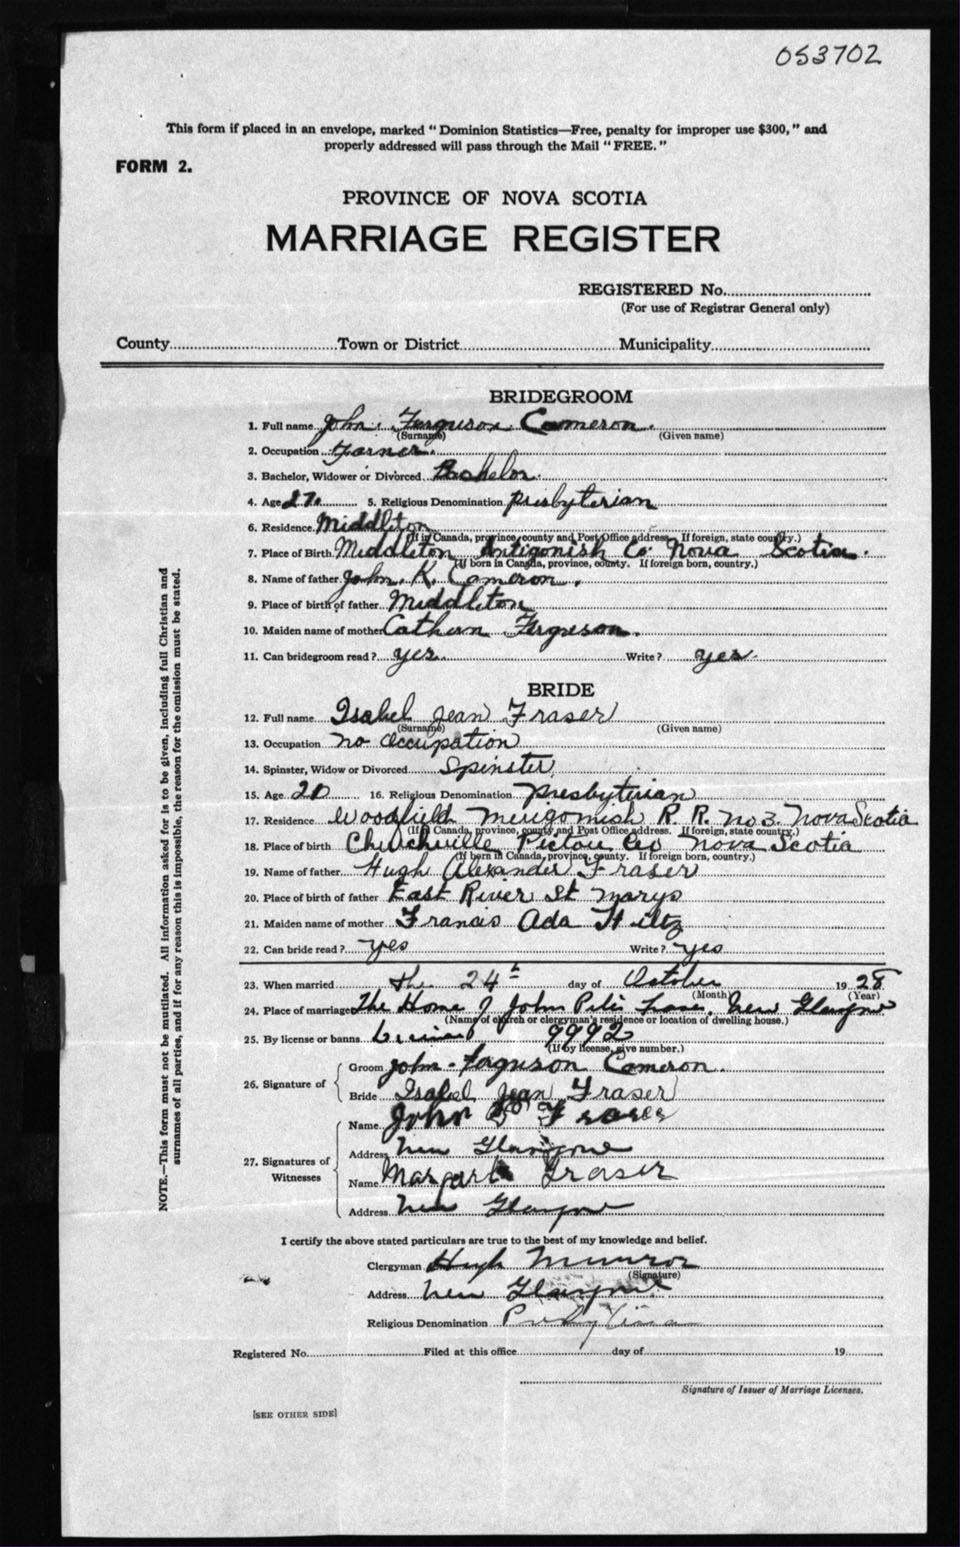 053702
This form if placed in an envelope, marked "Dominion Statistics—Free, penalty for improper use $300," and
properly addressed will pass through the Mail "FREE."
FORM 2.
PROVINCE OF NOVA SCOTIA
MARRIAGE REGISTER
REGISTERED No.
(For use of Registrar General only)
County Town or District Municipality
BRIDEGROOM
1. Full name John Ferguson Cameron.
(Surname) (Given name)
2. Occupation Farmer.
3. Bachelor, Widower or Divorced Bachelor.
4. Age 27 5. Religious Denomination Presbyterian
6. Residence Middleton
(If in Canada, province, county and Post Office address. If foreign, state country.)
7. Place of Birth Middleton Antigonish Co. Nova Scotia.
(If born in Canada, province, county. If foreign born, country.)
8. Name of father John. K. Cameron.
9. Place of birth of father Middleton
10. Maiden name of mother Cathern Ferguson.
11. Can bridegroom read? yes. Write? yes.
BRIDE
12. Full name Isabel Jean Fraser
(Surname) (Given name)
13. Occupation no occupation
14. Spinster, Widow or Divorced Spinster
15. Age 20 16. Religious Denomination Presbyterian
17. Residence Woodfield Merigomish R. R. No 3. Nova Scotia
(If in Canada, province, county and Post Office address. If foreign, state country.)
18. Place of birth Churchville Pictou Co Nova Scotia
(If born in Canada, province, county. If foreign born, country.)
19. Name of father Hugh Alexander Fraser
20. Place of birth of father East River St Marys
21. Maiden name of mother Francis Ada Hiltz
22. Can bride read? yes Write? yes
23. When married the 24th day of October 1928
(Month) (Year)
24. Place of marriage The Home of John New Glasgow
(Name of church or clergyman's residence or location of dwelling house.)
25. By license or banns License 9992
(If by license, give number.)
26. Signature of
Groom John Ferguson Cameron.
Bride Isabel Jean Fraser
27. Signatures of Witnesses
Name John Fraser
Address New Glasgow
Name Margaret Fraser
Address New Glasgow
I certify the above stated particulars are true to the best of my knowledge and belief.
Clergyman Hugh Munroe
(Signature)
Address New Glasgow
Religious Denomination Presbyterian
Registered No. Filed at this office day of 19
Signature of Issuer of Marriage Licenses.
[SEE OTHER SIDE]
NOTE.—This form must not be mutilated. All information asked for is to be given, including full Christian and
surnames of all parties, and if for any reason this is impossible, the reason for the omission must be stated.